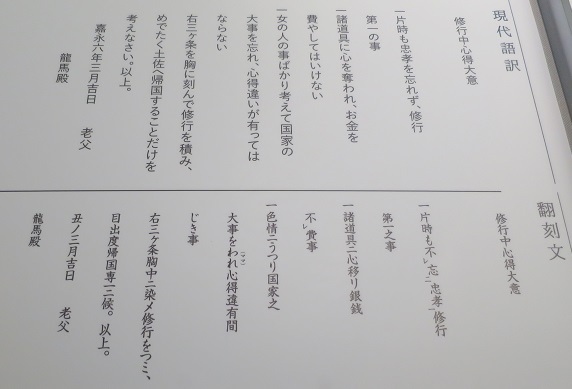 現代語訳
修行中心得大意
一片時も忠孝を忘れず、修行
第一の事
一諸道具に心を奪われ、お金を
費やしてはいけない
一女の人の事ばかり考えて国家の
大事を忘れ、心得違いが有っては
ならない
右三ヶ条を胸に刻んで修行を積み、
めでたく土佐へ帰国することだけを
考えなさい。以上。
嘉永六年三月吉日　老父
龍馬殿
翻刻文
修行中心得大意
一片時も不レ忘二忠孝一修行
第一之事
一諸道具ニ心移リ銀銭
不レ費事
一色情ニうつり国家之
大事をわれ心得違有間
じき事
右三ヶ条胸中ニ染メ修行をつミ、
目出度帰国専一ニ候。以上。
丑ノ三月吉日　老父
龍馬殿